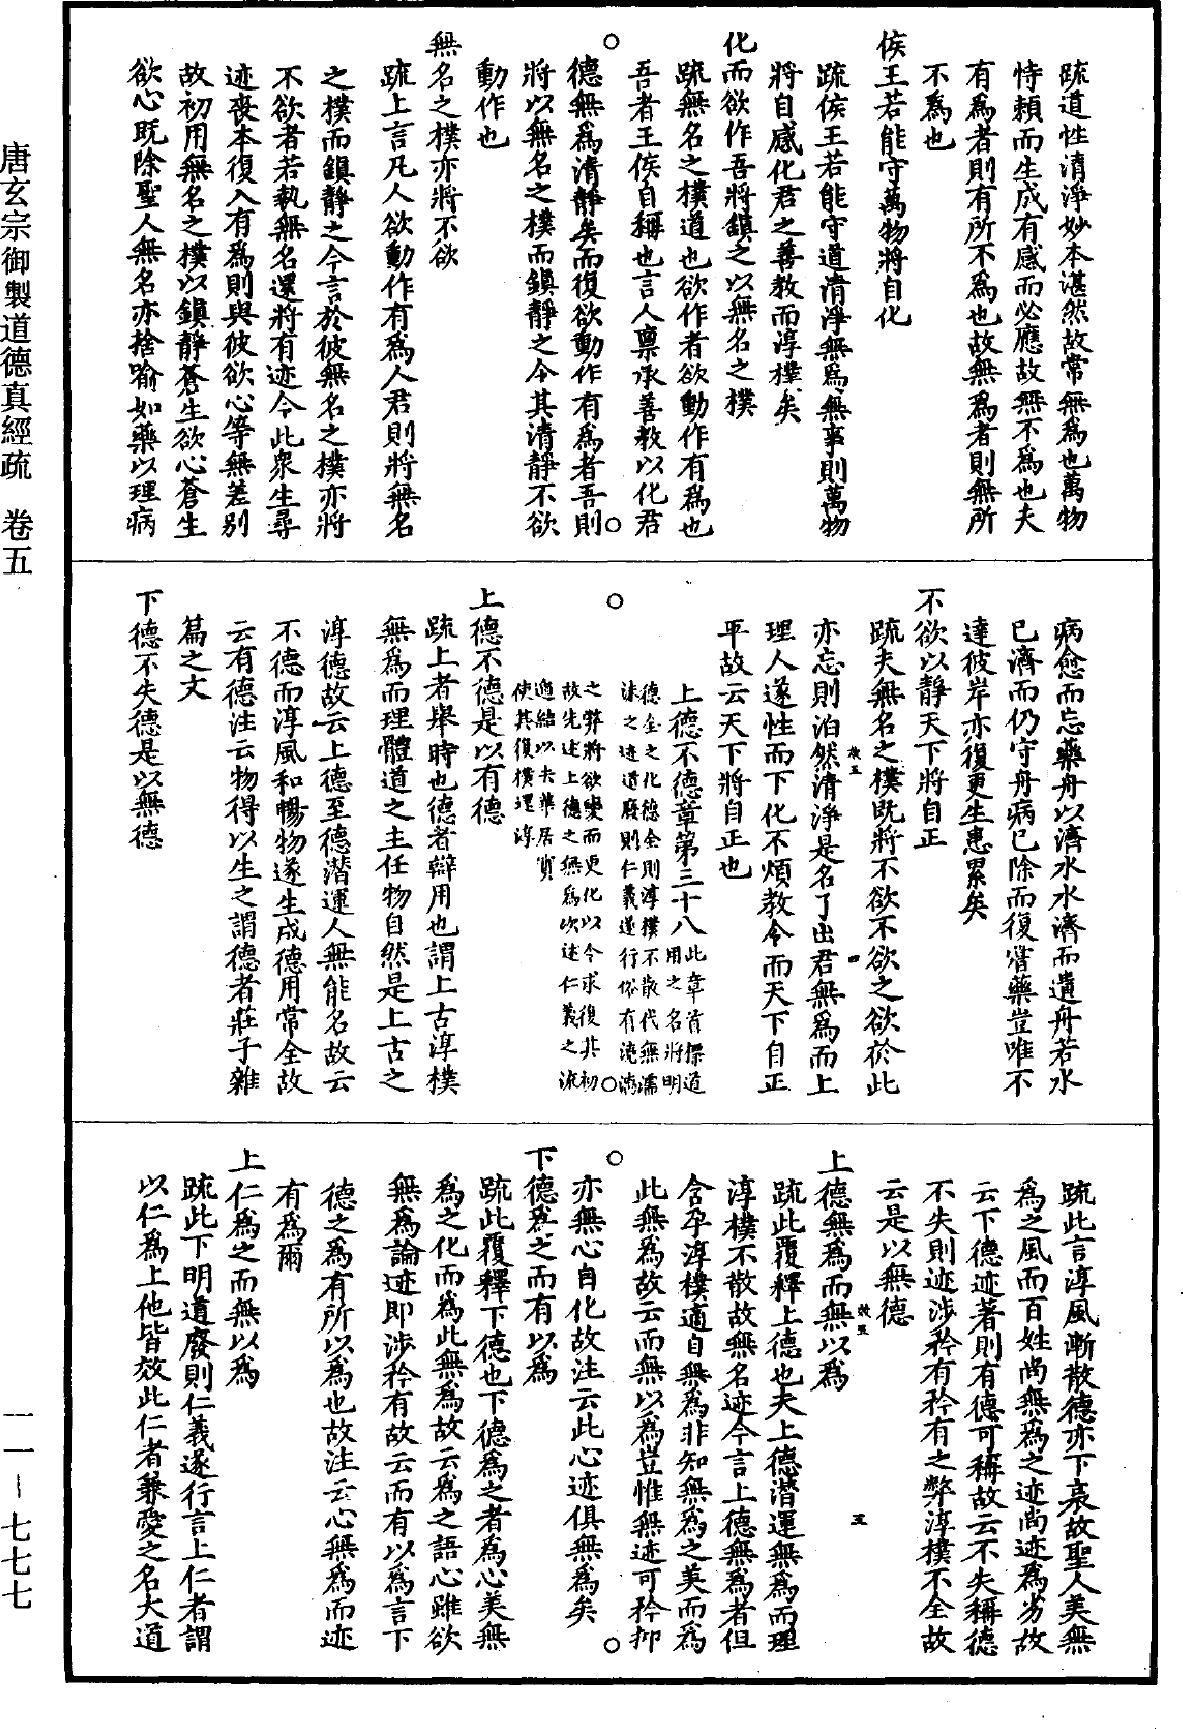 疏道性清淨妙本湛然故常無為也萬物
恃賴而生成有感而必應故無不為也夫
有為者則有所不為也故無為者則無所
不為也
侯王若能守萬物將自化
疏侯王若能守道清淨無為無事則萬物
將自感化君之善教而淳樸矣
化而欲作吾將鎮之以無名之樸
疏無名之樸道也欲作者欲動作有為也
吾者王侯自稱也言人稟承善教以化君
德無為清靜矣而復欲動作有為者吾則
將以無名之樸而鎮靜之令其清靜不欲
動作也
無名之樸亦將不欲
疏上言凡人欲動作有為人君則將無名
之樸而鎮靜之今言於彼無名之樸亦將
不欲者若執無名還將有迹令此衆生尋
迹喪本復入有為則與彼欲心等無差別
故初用無名之樸以鎮靜蒼生欲心蒼生
欲心既除聖人無名亦捨喻如藥以理病
病愈而忘藥舟以濟水水濟而遺舟若水
已濟而仍守舟病已除而復嘗藥豈唯不
達彼岸亦復更生患累矣
不欲以靜天下將自正
疏夫無名之樸既將不欲不欲之欲於此
亦忘則泊然清淨是名了出君無為而上
理人遂性而下化不煩教令而天下自正
平故云天下將自正也
上德不德章第三十八此章首標道
用之名將明
德全之化德全則淳樸不散代無濡
沫之迹道廢則仁義遂行俗有澆漓
之弊將欲變而更化以今求復其初
故先述上德之無為次述仁義之流
遁結以去華居實
使其復樸還淳
上德不德是以有德
疏上者舉時也德者辯用也謂上古淳樸
無為而理體道之主任物自然是上古之
淳德故云上德至德潛運人無能名故云
不德而淳風和暢物遂生成德用常全故
云有德注云物得以生之謂德者莊子雜
篇之文
下德不失德是以無德
疏此言淳風漸散德亦下衰故聖人美無
為之風而百姓尚無為之迹尚迹為劣故
云下德迹著則有德可稱故云不失稱德
不失則迹涉矜有矜有之弊淳樸不全故
云是以無德
上德無為而無以為
疏此覆釋上德也夫上德潛運無為而理
淳樸不散故無名迹今言上德無為者但
含孕淳樸適自無為非知無為之美而為
此無為故云而無以為豈惟無迹可矜抑
亦無心自化故注云此心迹俱無為矣
下德為之而有以為
疏此覆釋下德也下德為之者為心美無
為之化而為此無為故云為之語心雖欲
無為論迹即涉矜有故云而有以為言下
德之為有所以為也故注云心無為而迹
有為爾
上仁為之而無以為
疏此下明道廢則仁義遂行言上仁者謂
以仁為上他皆效此仁者兼愛之名大道
唐玄宗御製道德真經疏 卷五
一一-七七七